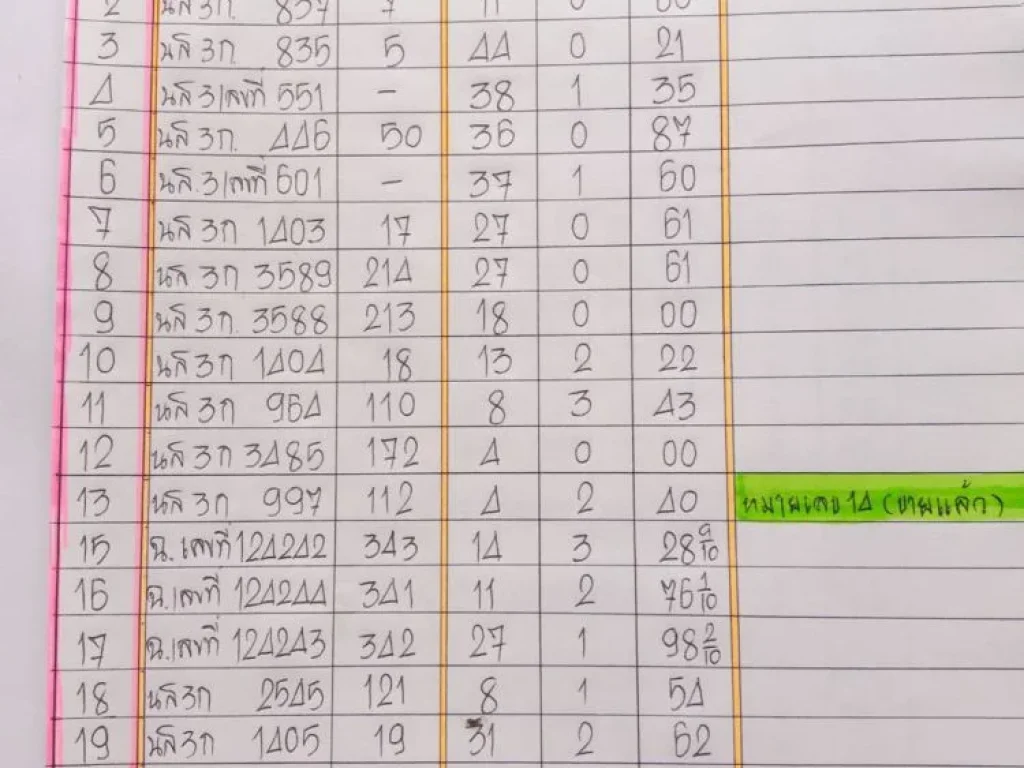 2 นส 3 ก. 837 7 11 0 00
3 นส 3 ก. 835 5 44 0 21
4 นส 3 เลขที่ 551 - 38 1 35
5 นส 3 ก. 446 50 36 0 87
6 นส. 3 เลขที่ 601 - 37 1 60
7 นส 3 ก 1403 17 27 0 61
8 นส 3 ก 3589 214 27 0 61
9 นส 3 ก. 3588 213 18 0 00
10 นส 3 ก 1404 18 13 2 22
11 นส 3 ก 964 110 8 3 43
12 นส 3 ก 3485 172 4 0 00
13 นส 3 ก 997 112 4 2 40 หมายเลข 14 (ขายแล้ว)
15 ฉ. เลขที่ 124242 343 14 3 28 9/10
16 ฉ. เลขที่ 124244 341 11 2 76 1/10
17 ฉ. เลขที่ 124243 342 27 1 98 2/10
18 นส 3 ก 2545 121 8 1 54
19 นส 3 ก 1405 19 31 2 62